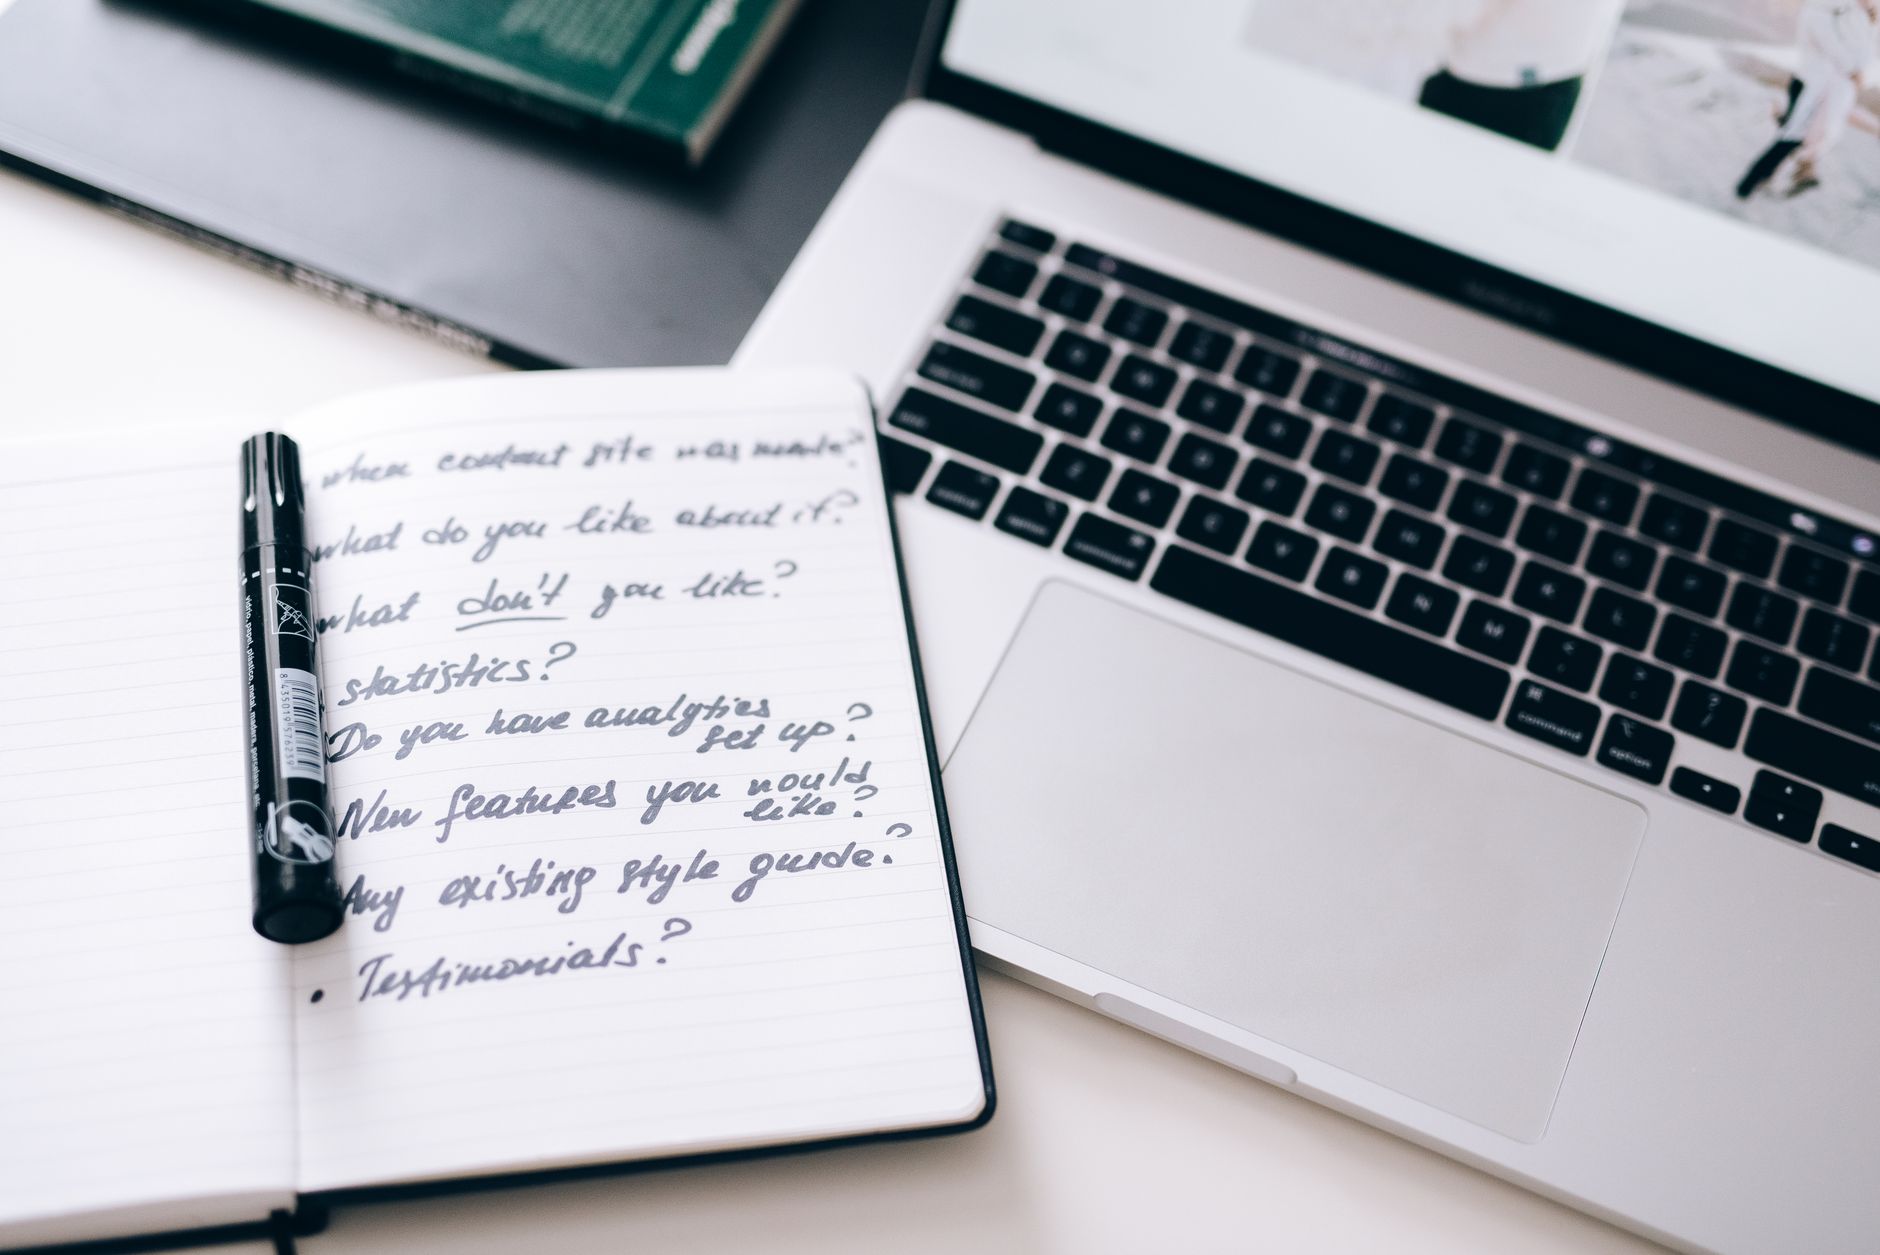 when content site was made?
what do you like about it?
what don't you like?
statistics?
Do you have analytics
set up?
New features you would
like?
Any existing style guide?
• Testimonials?
vidrio, papel, plástico, metal, madera, porcelana, etc.
8 435019 576239
control
option
command
command
option